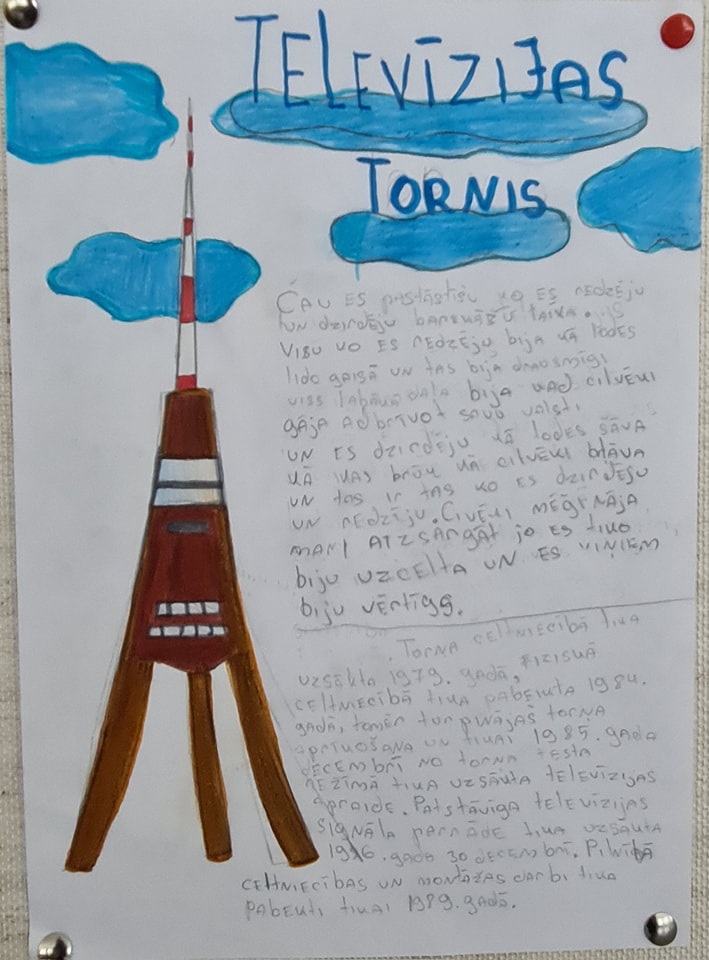 TELEVĪZIJAS
TORNIS
ČAU ES pastāstīšu KO ES redzēju
UN dzirdēju barikāžu laikā.
Visu ko es redzēju bija kā lodes
lido gaisā un tas bija drausmīgi
viss labākā daļa bija kad cilvēki
gāja adbrīvot savu valsti
un es dzirdēju kā lodes šāva
kā kas brūk kā cilvēki bļāva
un tas ir tas ko es dzirdēju
un redzēju. Civēki mēģināja
mani atzsargāt jo es tiko
biju uzcelta un es viņiem
biju vērtīgs.
Torņa celtniecībā tika
uzsākta 1979. gadā, fiziskā
celtniecībā tika pabeigta 1984.
gadā, tomēr turpinājās torņa
aprīkošana un tikai 1985. gada
decembrī no torņa testa
režīmā tika uzsākta televīzijas
apraide. Patstāvīga televīzijas
signāla parraide tika uzsākta
1986. gada 30 decembrī. Pilnībā
celtniecības un montāžas darbi tika
pabeikti tikai 1989. gadā.